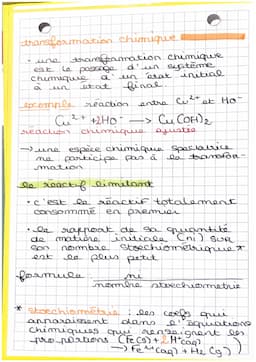 transformation chimique
• une transformation chimique
est le passage d'un système
chimique d'un état initial
à un état final.
exemple réaction entre Cu²⁺ et HO⁻
Cu²⁺ + 2HO⁻ → Cu(OH)₂
réaction chimique ajustée
→ une espèce chimique spectatrice
ne participe pas à la transfor-
mation
le réactif limitant
• c'est le réactif totalement
consommé en premier
• le rapport de sa quantité
de matière initiale (ni) sur
son nombre stoechiométrique *
est le plus petit
formule ni
nombre stoechiometrie
* stoechiométrie : les coefs qui
apparaissent dans l'équations
chimiques qui renseignent les
proportions (Fe(s) + 2H⁺(aq)
→ Fe²⁺(aq) + H₂(g))